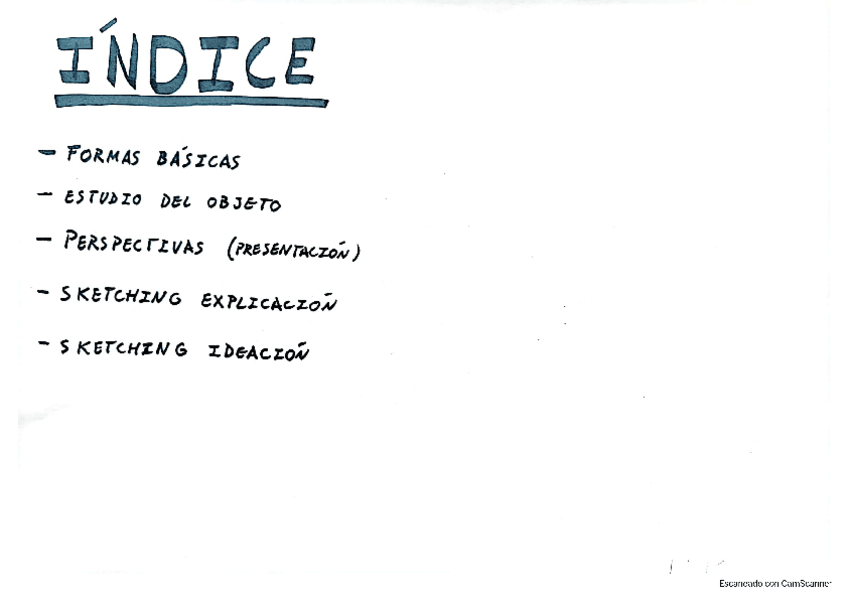 ÍNDICE
- FORMAS BÁSICAS
- ESTUDIO DEL OBJETO
- PERSPECTIVAS (PRESENTACIÓN)
- SKETCHING EXPLICACIÓN
- SKETCHING IDEACIÓN
Escaneado con CamScanner